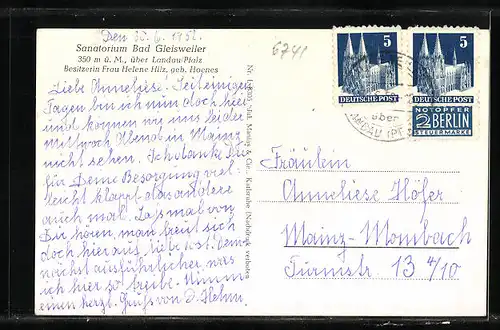 Den 30.6.1952.
6741
Sanatorium Bad Gleisweiler
350 m ü. M., über Landau/Pfalz
Besitzerin Frau Helene Hilz, geb. Hoenes
Liebe Anneliese! Seit einigen
Tagen bin ich nun doch hier
und können wir uns leider
Mittwoch Abend in Mainz
nicht sehen. Ich danke Dir
für Deine Besorgung viel-
leicht klappt das andere
auch mal. Lass mal von
Dir hören, man freut sich
doch hier aufs liebste.
nächst ausführlicher, was
ich hier so treibe. Nimm
einen herzl. Gruß von D. Helm.
Karlsruhe (Nachdruck verboten
5
DEUTSCHE POST
5
DEUTSCHE POST
NOTOPFER
2 BERLIN
STEUERMARKE
über
LANDAU (PF
Fräulein
Anneliese Höfer
Mainz-Mombach
Turmstr. 13 4/10